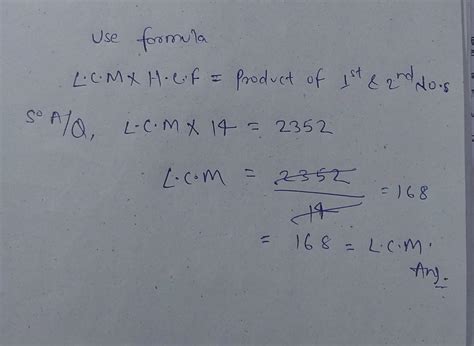 Use formula
L.C.M X H.C.F = Product of 1st & 2nd No.s
So A/Q, L.C.M X 14 = 2352
L.C.M = 2352/14 = 168
= 168 = L.C.M.
Ans.